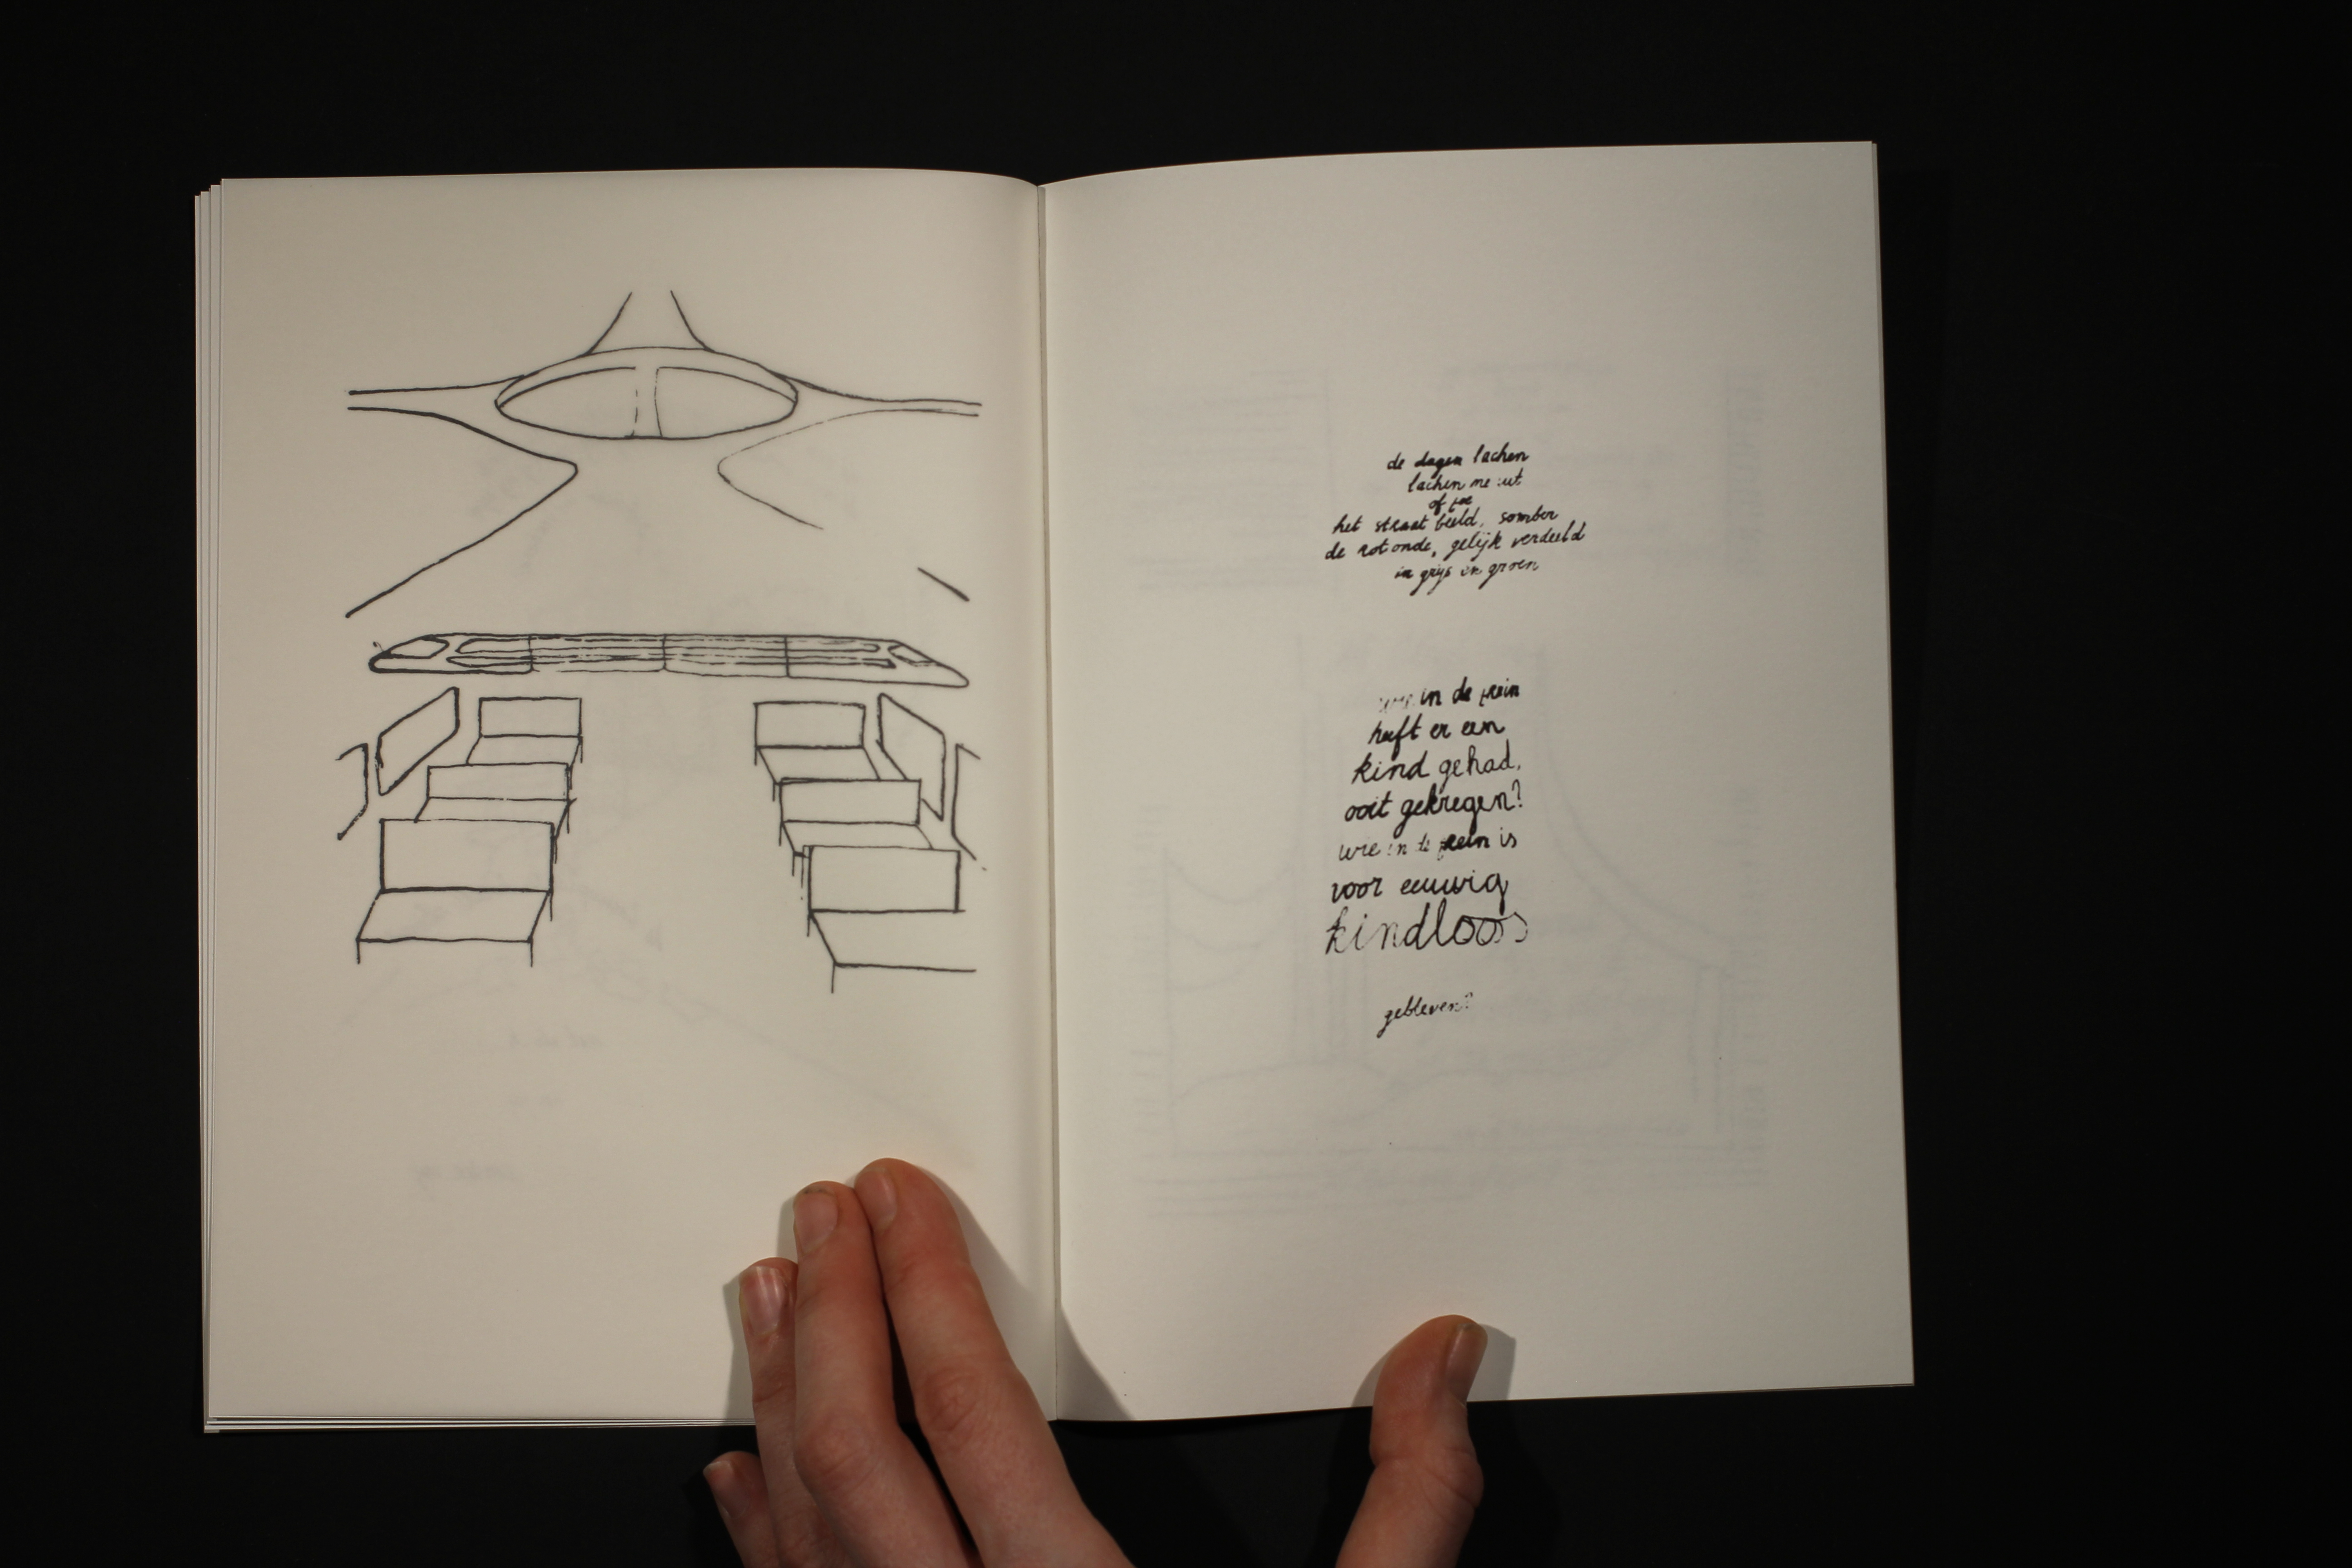 de dagen lachen
lachen me uit
of toe
het straatbeeld, somber
de rotonde, gelijk verdeeld
in grijs en groen
wie in de trein
heeft er een
kind gehad,
ooit gekregen?
wie in de trein is
voor eeuwig
kindloos
gebleven?